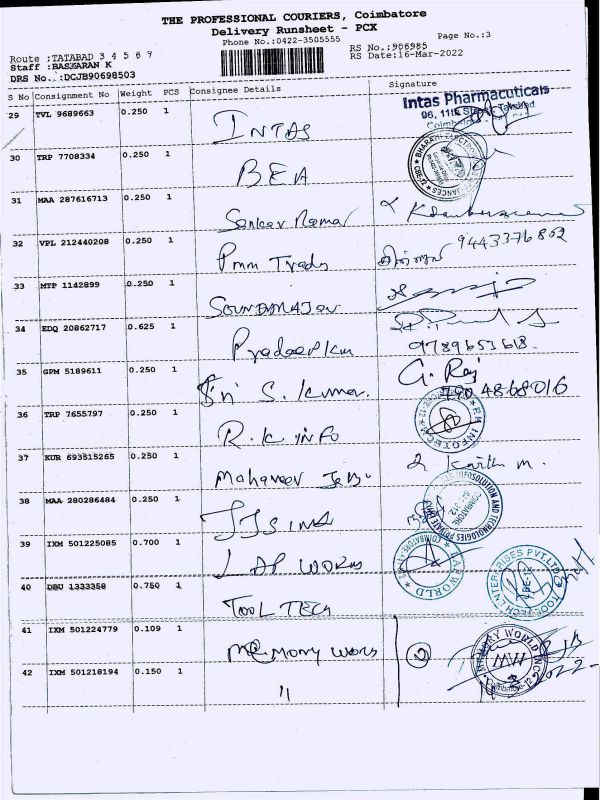 THE PROFESSIONAL COURIERS, Coimbatore
Delivery Runsheet - PCX
Phone No.:0422-3505555
Page No.:3
Route :TATABAD 3 4 5 6 7
RS No.:906985
Staff :BASKARAN K
RS Date:16-Mar-2022
DRS No..:DCJB90698503
S No Consignment No Weight PCS Consignee Details Signature
29 TVL 9689663 0.250 1 INTAS Intas Pharmaceuticals
96, 11th
Coimbatore
30 TRP 7708334 0.250 1 BEA BHARATH
31 MAA 287616713 0.250 1 Sankar Raman
32 VPL 212440208 0.250 1 Pmm 9443376802
33 MTP 1142899 0.250 1 SOUNDARAJAN
34 EDQ 20862717 0.625 1 Pradeepkm
9789653618.
35 GPM 5189611 0.250 1 Sri S. Kumar. G. Raj
790 4868016
36 TRP 7655797 0.250 1 R.K INFO INFOTECH
37 KUR 693515265 0.250 1 Mahaveer
38 MAA 280286484 0.250 1 INFOSOLUTION AND TECHNOLOGIES PRIVATE
COIMBATORE
39 IXM 501225085 0.700 1 LAP WORLD LAP WORLD
40 DBU 1333358 0.750 1 TOOL TECH TOOL TECH ENTERPRISES PVT LTD
41 IXM 501224779 0.109 1 MEMORY WORLD 2 MEMORY WORLD INC
MW
Coimbatore-12
42 IXM 501218194 0.150 1 "